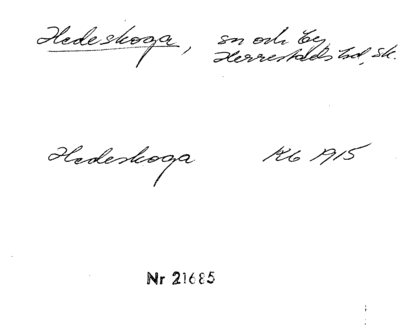 Hedeskoga, sn och by,
Herrestads hd, Sk.
Hedeskoga Kb 1915
Nr 21685